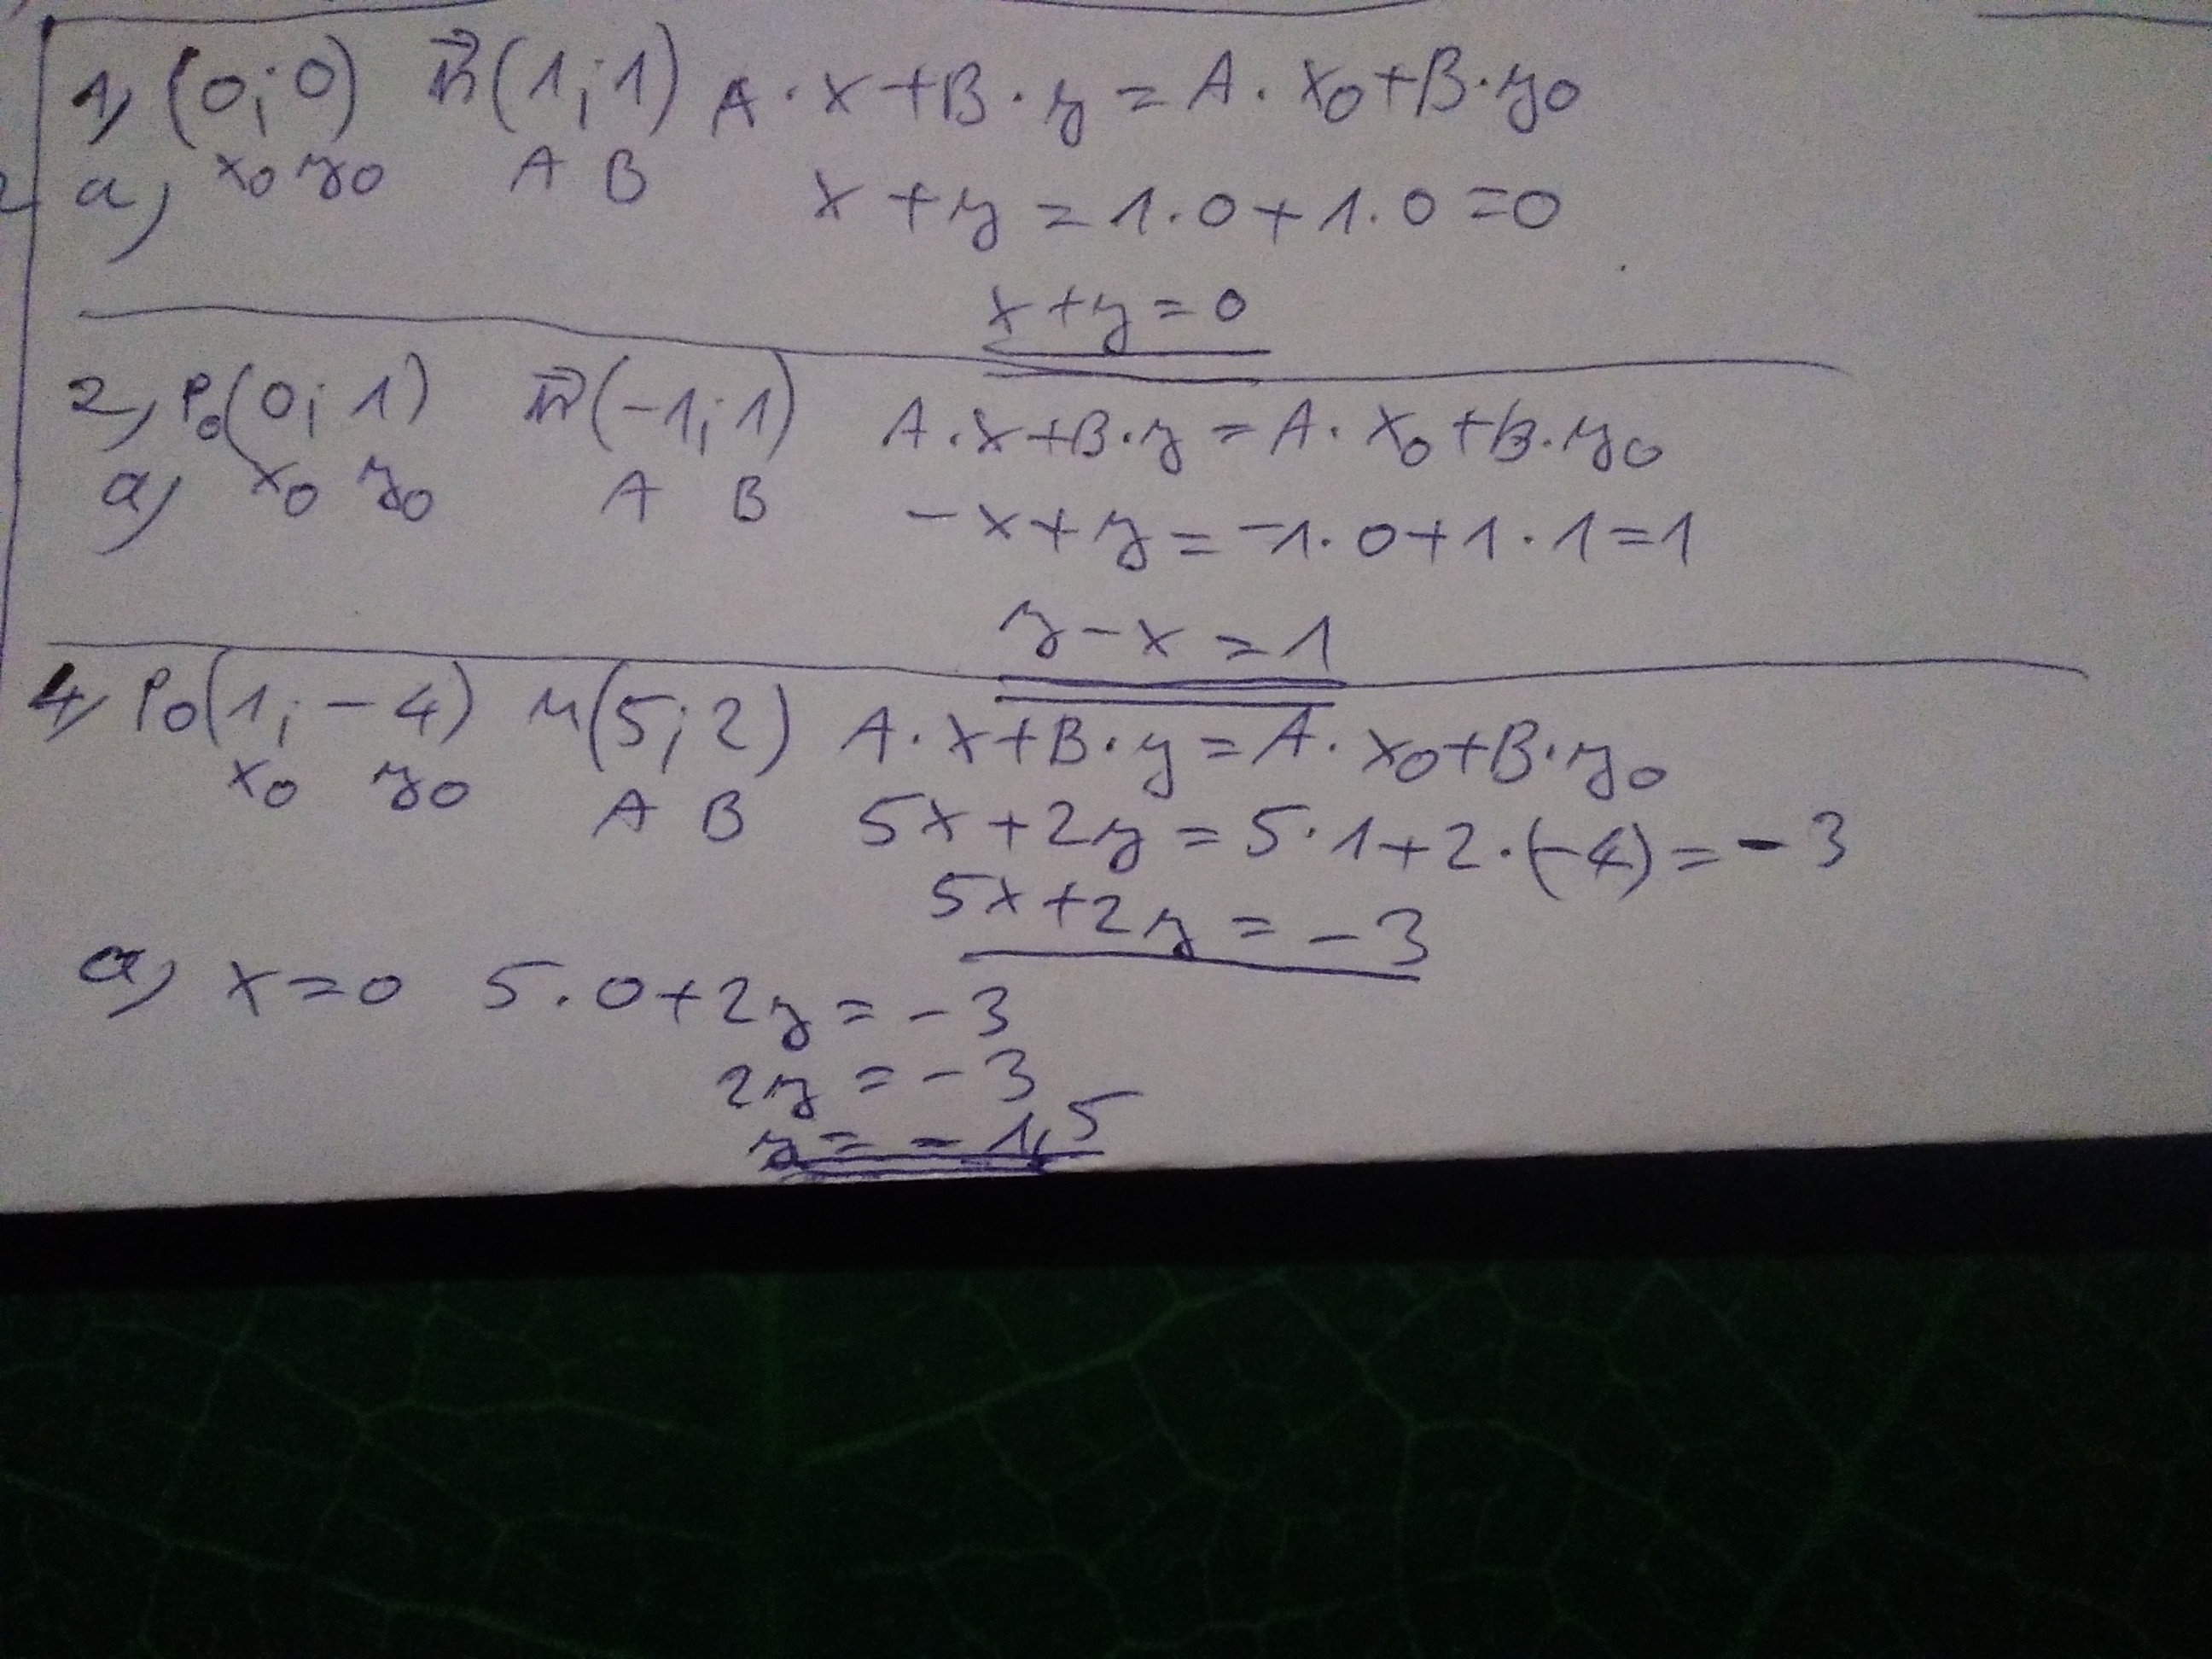 1, (0;0) n⃗(1;1) A·x+B·y=A·x₀+B·y₀
a, x₀ y₀ A B x+y=1·0+1·0=0
x+y=0
2, P₀(0;1) n⃗(-1;1) A·x+B·y=A·x₀+B·y₀
a, x₀ y₀ A B -x+y=-1·0+1·1=1
y-x=1
4, P₀(1;-4) n(5;2) A·x+B·y=A·x₀+B·y₀
x₀ y₀ A B 5x+2y=5·1+2·(-4)=-3
5x+2y=-3
a, x=0 5·0+2y=-3
2y=-3
y=-1,5